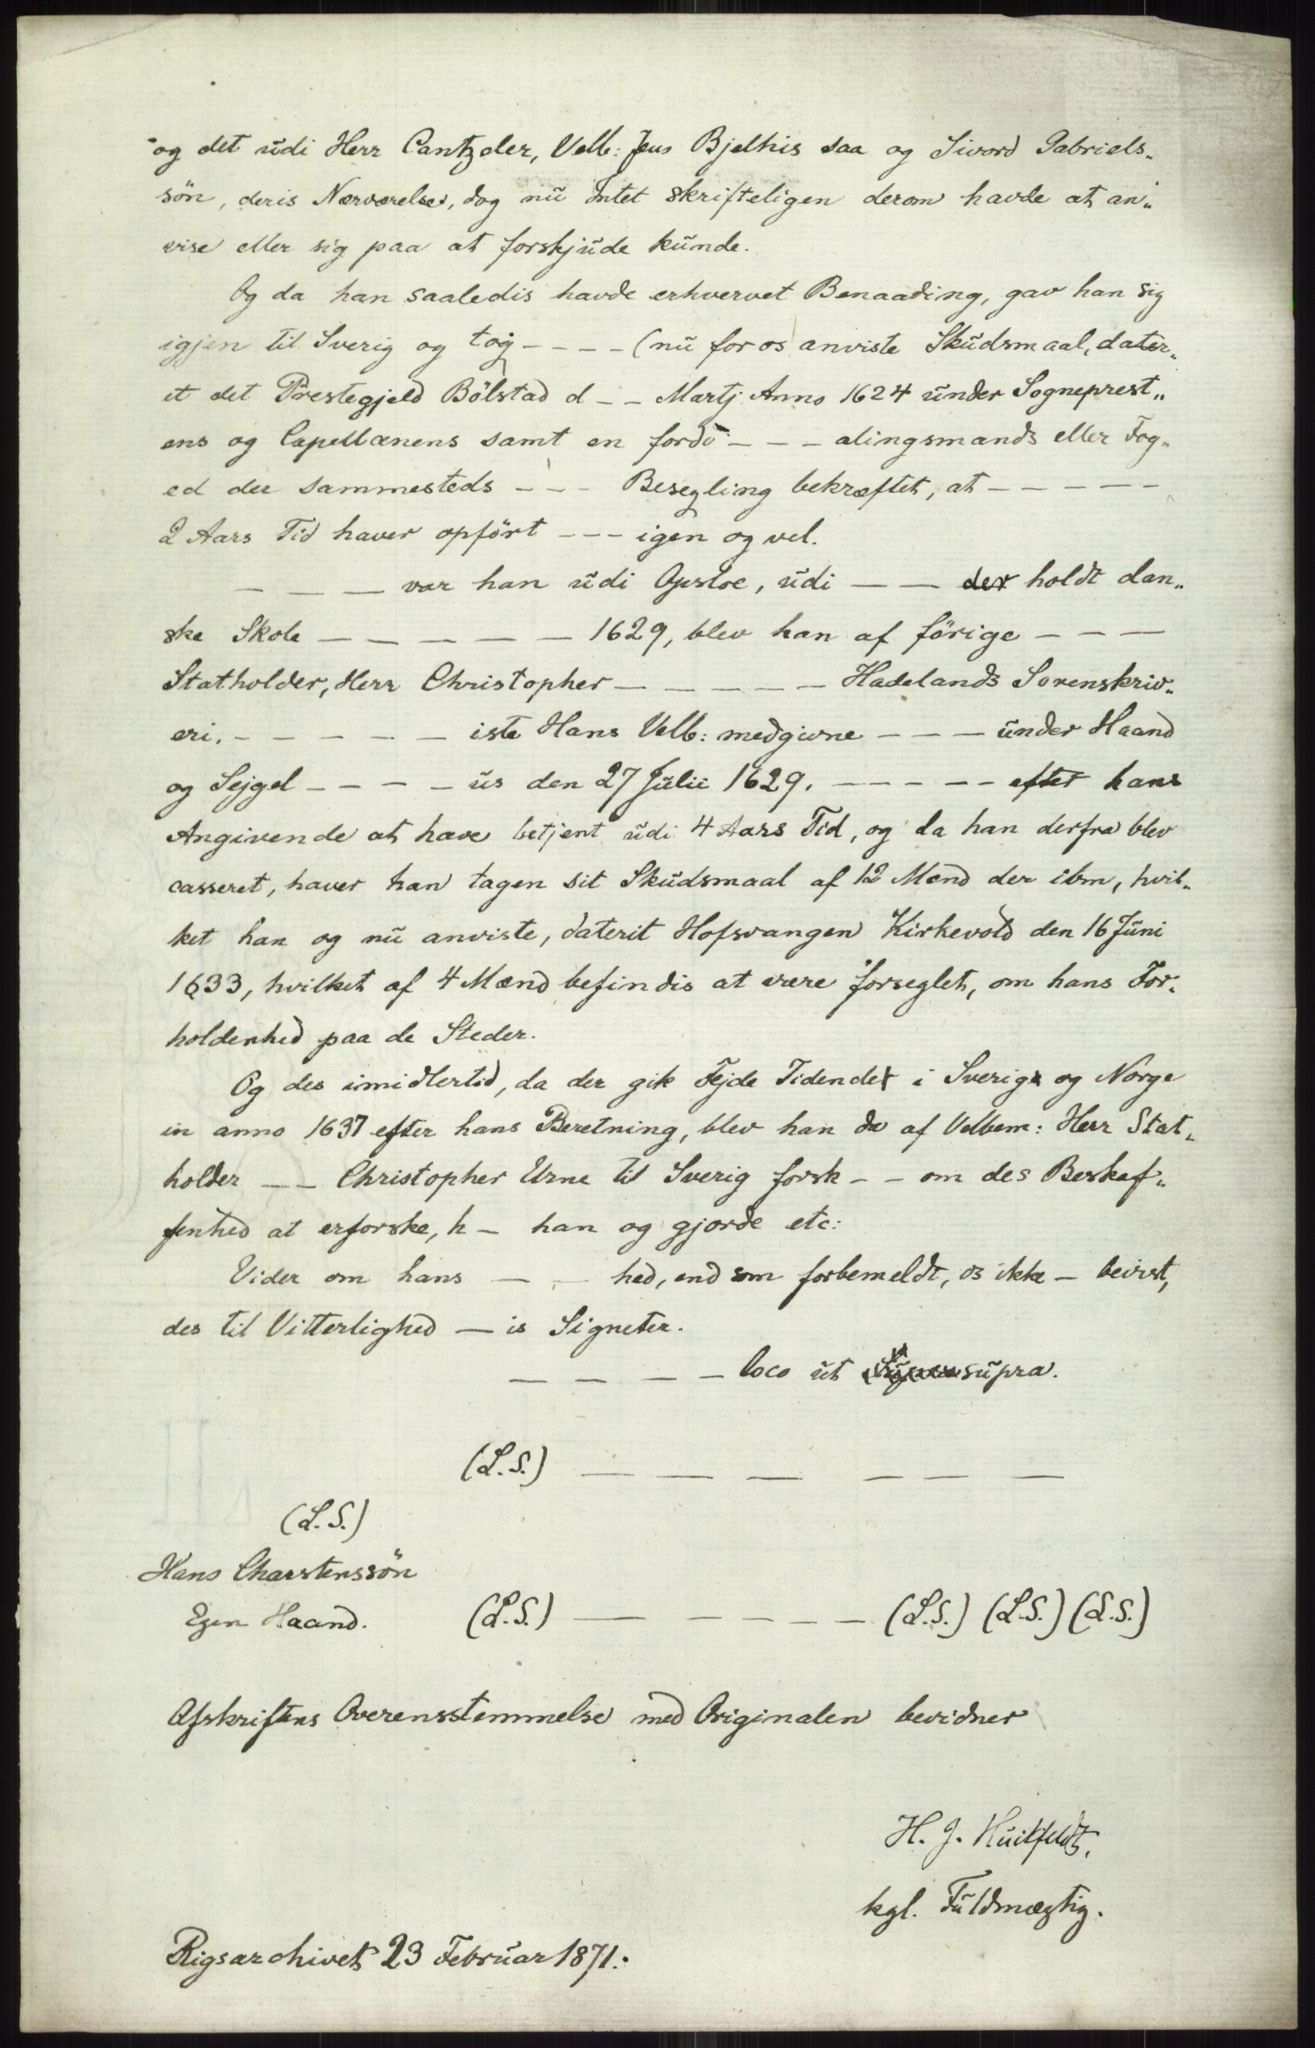 og det udi Herr Cantzeler, Velb: Jens Bjelhis saa og Sivord Gabriels„
søn, deris Nærværelse, dog nu Intet skrifteligen derom havde at an„
vise eller sig paa at forskjude kunde.
Og da han saaledis havde erhvervet Benaading, gav han sig
igjen til Sverig og tog – – – – (nu for os anviste Skudsmaal, dater„
et det Prestegjeld Bölstad d – – Martj Anno 1624 under Sogneprest„
ens og Capellanens samt en fordo – – – alingsmands eller Fog„
ed der sammesteds – – – Besegling bekræftet, at – – – – –
2 Aars Tid haver opfört – – – igen og vel.
– – – var han udi Opsloe, udi – – der holdt dan„
ske Skole – – – – – – 1629, blev han af förige – – –
Statholder, Herr Christopher – – – – – Hadelands Sorenskriv„
eri. – – – – – iste Hans Velb: medgivne – – – under Haand
og Sejgel – – – – us den 27 Julii 1629. – – – – – efter hans
Angivende at have betjent udi 4 Aars Tid, og da han derfra blev
casseret, haver han tagen sit Skudsmaal af 12 Mænd der ibm, hvil„
ket han og nu anviste, daterit Hofsvangen Kirkevold den 16 Juni
1633, hvilket af 4 Mænd befindis at være forseglet, om hans For„
holdenhed paa de Steder.
Og des imidlertid, da der gik Fejde Tidender i Sverig og Norge
in anno 1637 efter hans Beretning, blev han da af Velbem: Herr Stat„
holder – – Christopher Urne til Sverig forsk – – om des Beskaf„
fenhed at erforske, h – han og gjorde etc:
Vider om hans – – hed, end som forbemeldt, os ikke – bevist,
des til Vitterlighed – is Signeter.
– – – – loco ut supra.
(L.S.) – – – – – –
(L.S.)
Hans Charstenssön
Egen Haand.
(L.S.) – – – – – (L.S.) (L.S.) (L.S.)
Afskriftens Overensstemmelse med Originalen bevidner
H. J. Huitfeldt,
kgl. Fuldmægtig.
Rigsarchivet 23 Februar 1871.